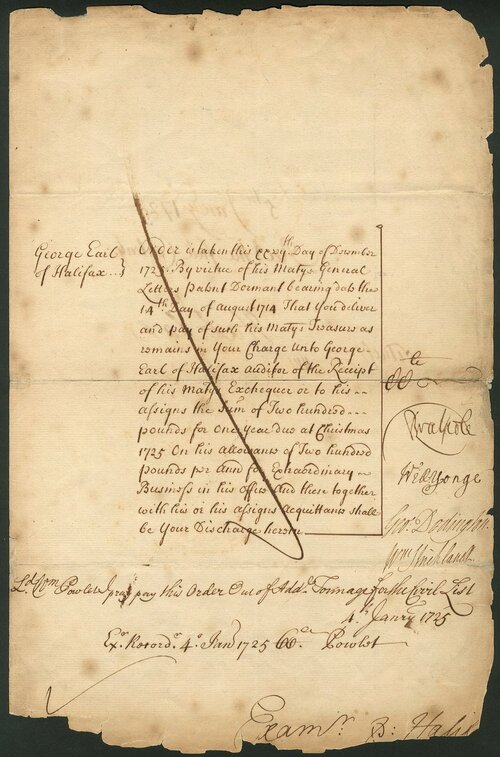 George Earl
of Halifax ..}
Order is taken this xxvijth Day of December
1725. By virtue of his Matys General
Letters Patent Dormant bearing date the
14th Day of August 1714 That you deliver
and pay of such his Matys Treasure as
remains in Your Charge unto George
Earl of Halifax auditor of the Receipt
of his Matys Exchequer or to his --
assigns the Sum of Two hundred ---
pounds for One Year due at Christmas
1725 On his allowance of Two hundred
pounds per Ann for Extraordinary ~
Business in his Office And these together
with his or his assigns Acquittance shall
be Your Discharge herein
RWalpole
Wm Yonge
Geo: Dodington
Wm Strickland
Ld Com Powlet I pray pay this Order Out of Addl. Tonnage for the Civil List
4th Janry 1725
Exr. Recordr. 4o Janr 1725 Powlet
Examr. B: Halif